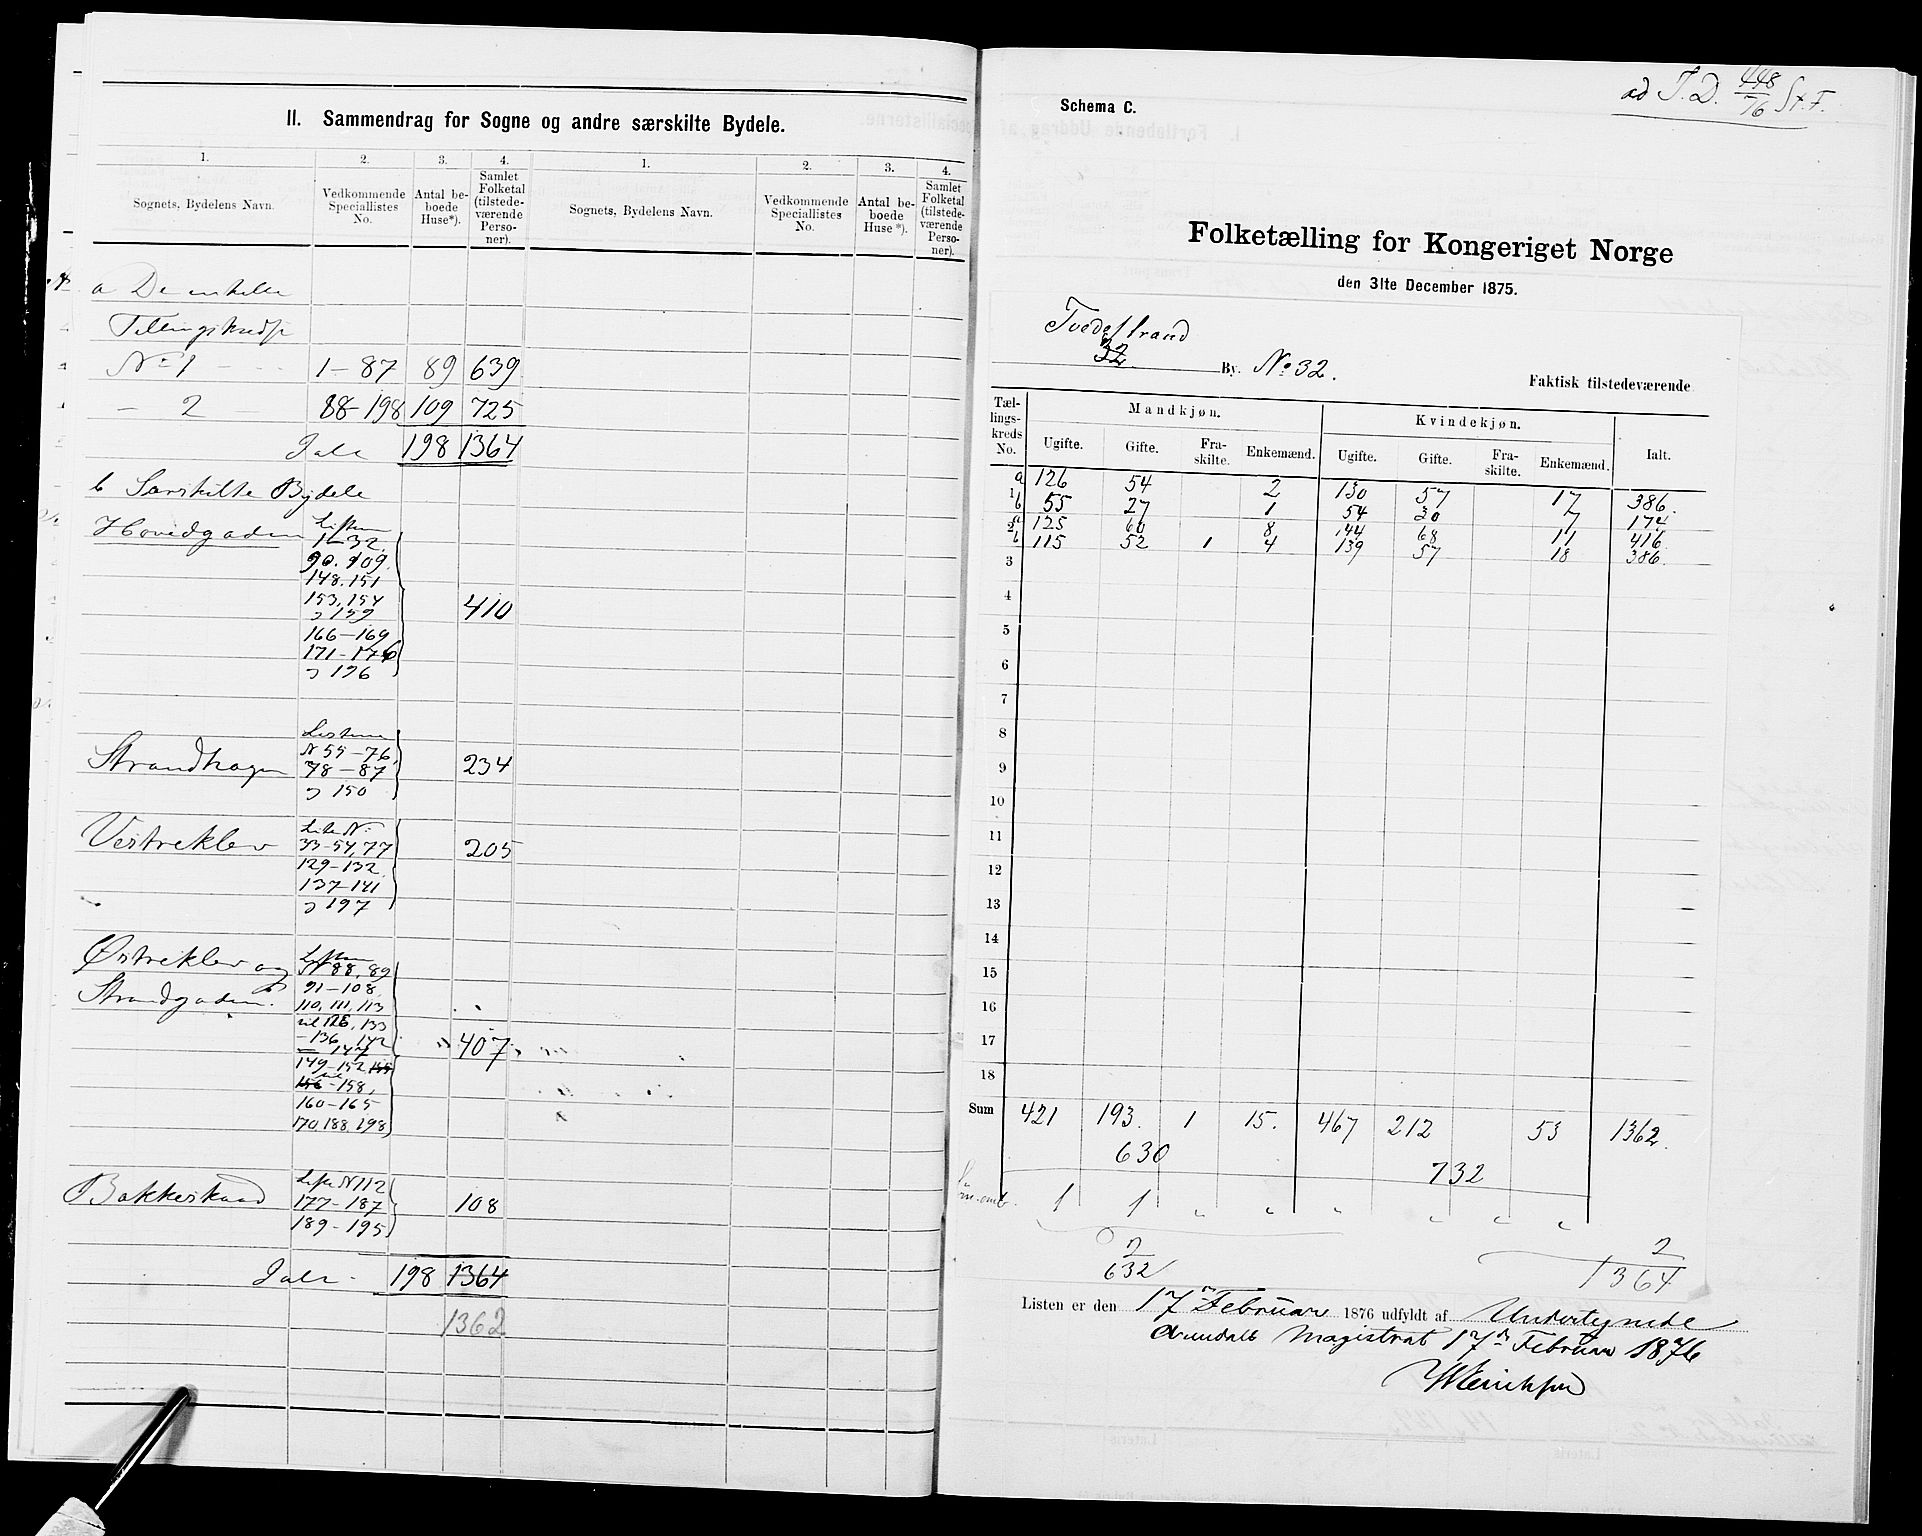 II. Sammendrag for Sogne og andre særskilte Bydele.
1. 2. 3. 4. 1. 2. 3. 4.
Sognets, Bydelens Navn. Vedkommende Speciallistes No. Antal beboede Huse*). Samlet Folketal (tilstedeværende Personer). Sognets, Bydelens Navn. Vedkommende Speciallistes No. Antal beboede Huse*). Samlet Folketal (tilstedeværende Personer).
a De enkelte
Tellingskredse
No 1 1-87 89 639
— 2 — 88-198 109 725
Ialt 198 1364
b Særskilte Bydele
Hovedgaden Listerne
1-32
90. 109.
148. 151
153. 154
159
166-169
171-176
196
410
Strandhagen Listerne
N 55-76,
78-87
150
234
Vestreklev Liste No
33-54, 77
129-132
137-141
197
205
Østreklev og
Strandgaden. Listerne
N 88, 89
91-108
110, 111, 113
til 128, 133
-136, 142
-147
149-152
-158,
160-165
170, 188, 198
407
Bakkeskaad Liste N 112
177-187
189-195
108
Ialt 198 1364
1362
ad J. D. 448/76 St. F.
Schema C.
Folketælling for Kongeriget Norge
den 31te December 1875.
Tvedestrand
32
By. No 32.
Faktisk tilstedeværende
Tællingskreds No. Mandkjøn. Kvindekjøn. Ialt.
Ugifte. Gifte. Fraskilte. Enkemænd. Ugifte. Gifte. Fraskilte. Enkemænd.
1 a 126 54 2 130 57 17 386.
b 55 27 1 54 30 7 174
2 a 125 60 8 144 68 11 416
b 115 52 1 4 139 57 18 386.
3
4
5
6
7
8
9
10
11
12
13
14
15
16
17
18
Sum 421 193. 1 15. 467 212 53 1362.
630 732
1 1 " " " " " "
2 2
632 1364
Listen er den 17 Februar 1876 udfyldt af Undertegnede
Arendals Magistrat 17de Februar 1876